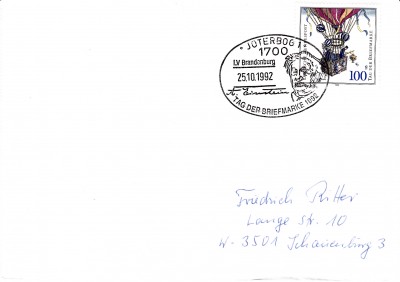 JÜTERBOG 1
1700
LV Brandenburg
25.10.1992
A. Einstein
TAG DER BRIEFMARKE 1992
100
TAG DER BRIEFMARKE
Friedrich Ritter
Lange Str. 10
W-3501 Schauenburg 3